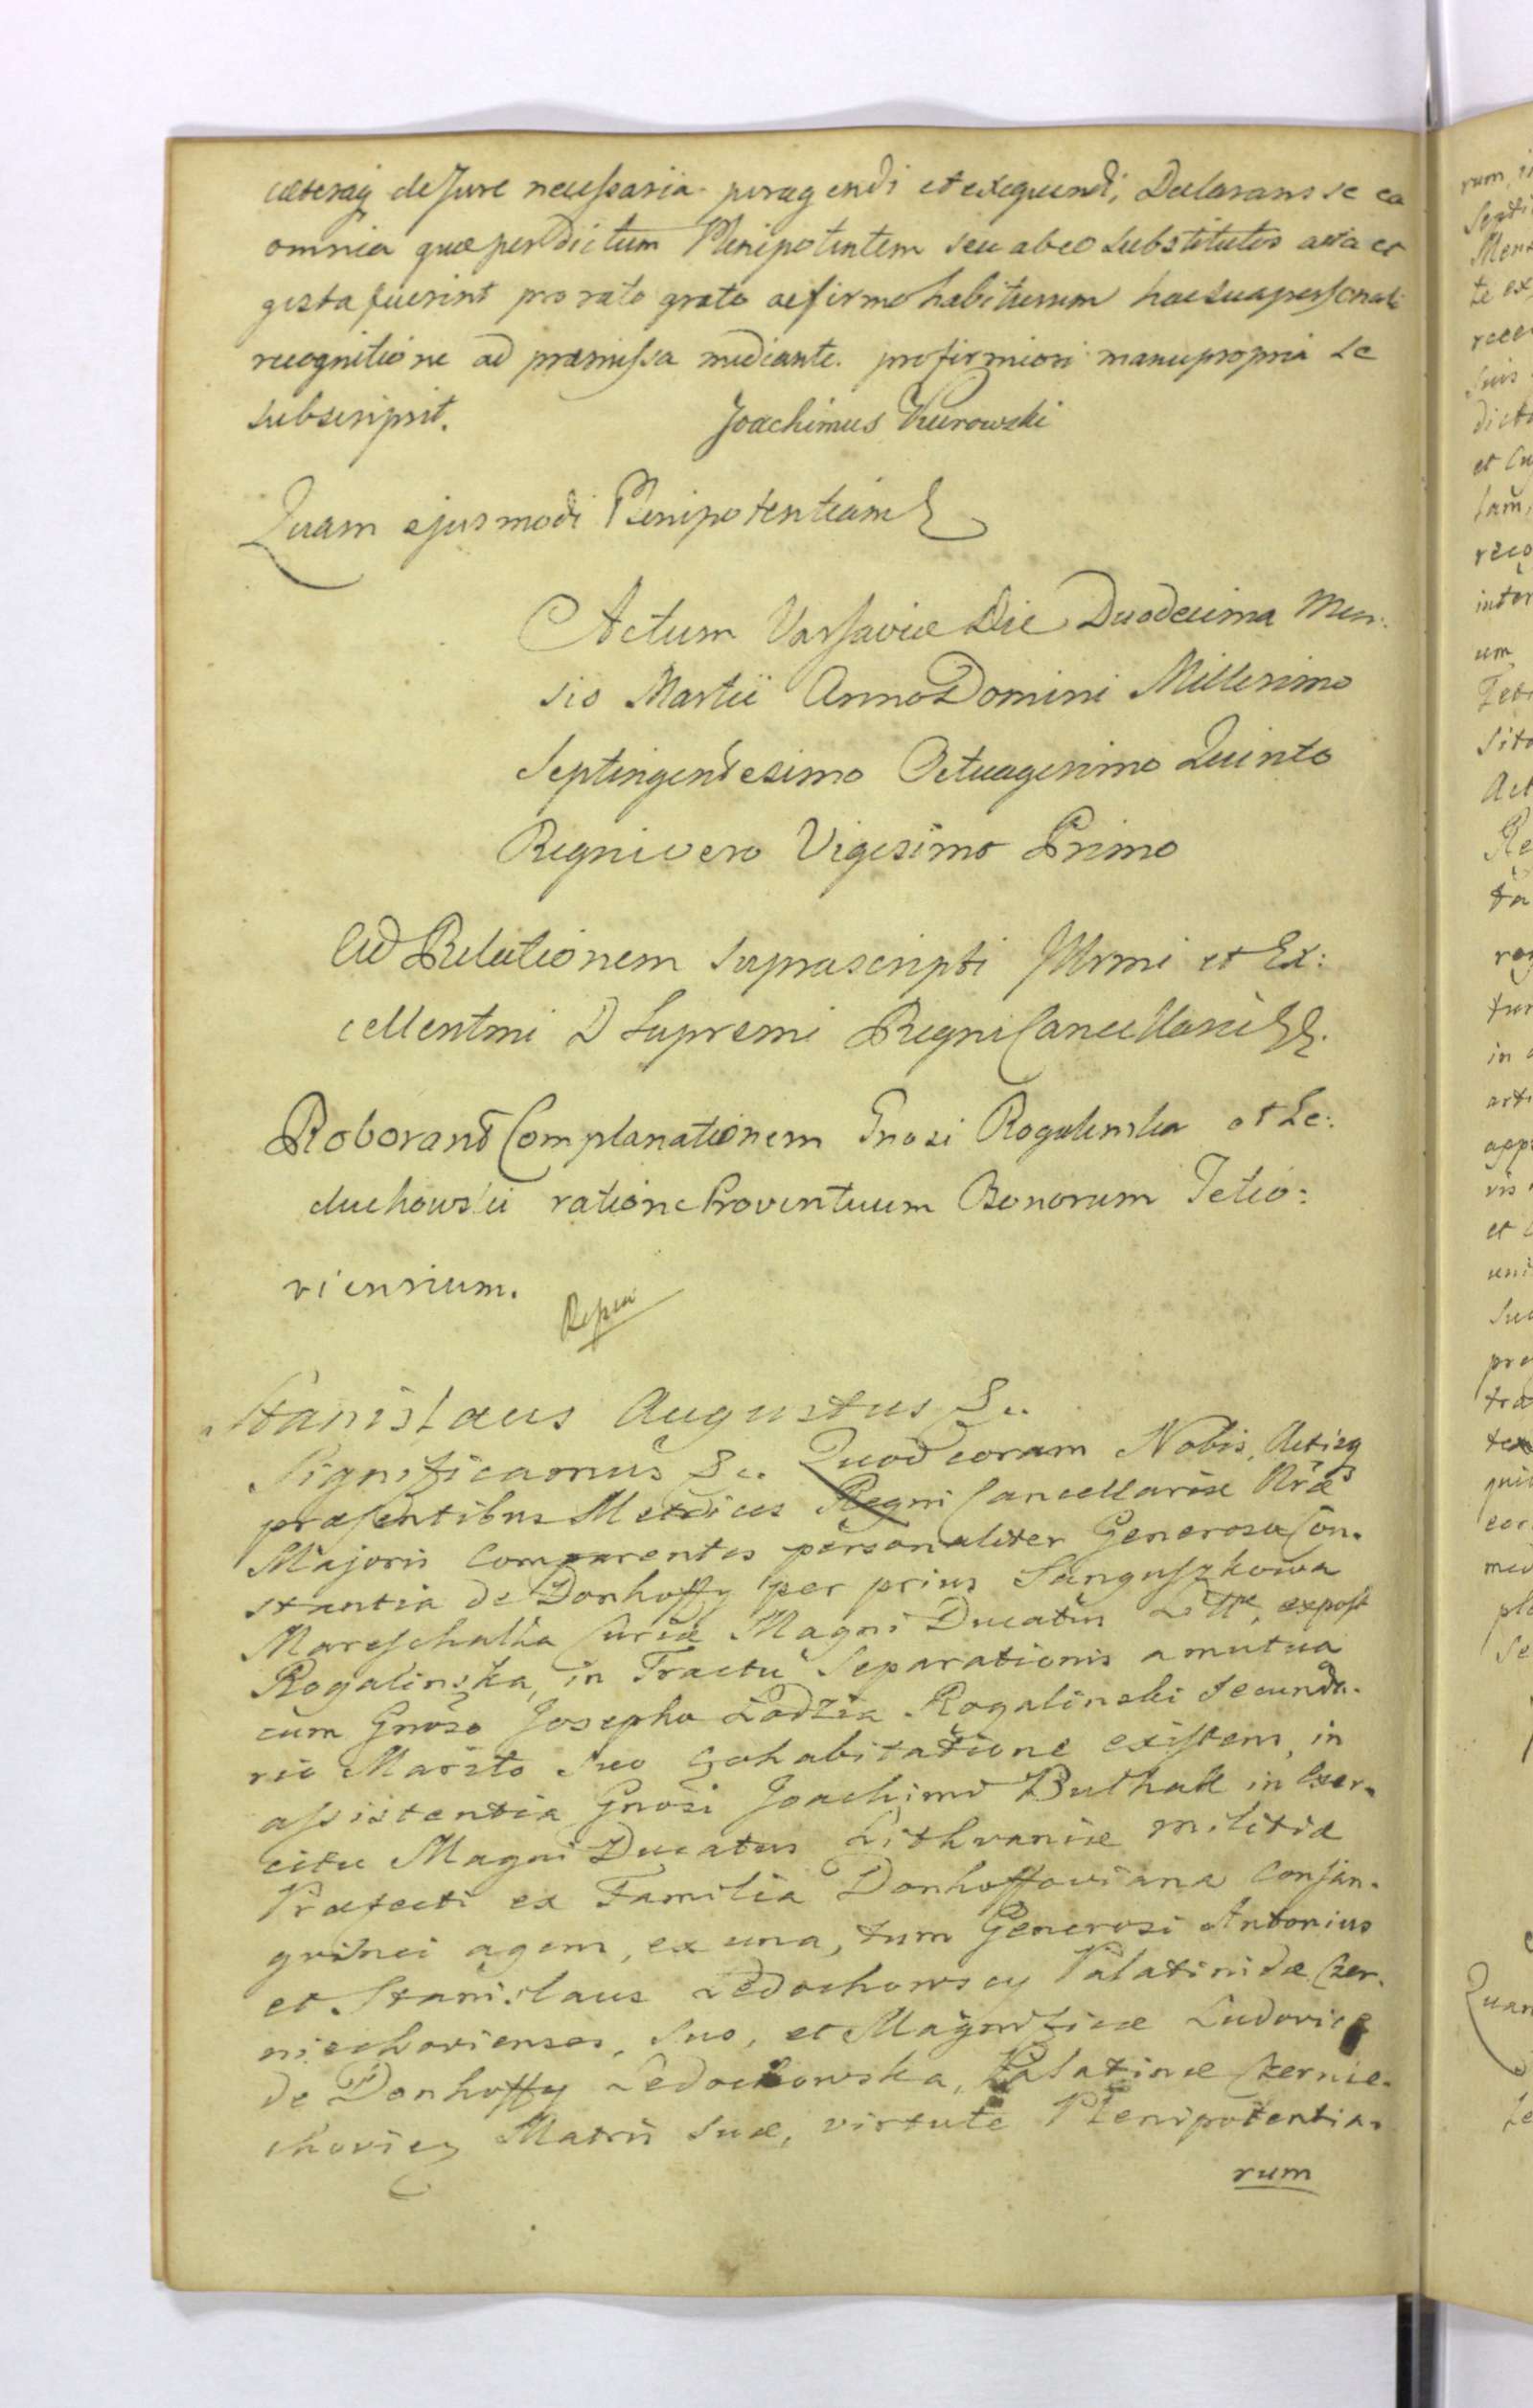 cæteraq deJure necessaria peragendi et exequendi, Declarans se ea
omnia quæ per dictum Plenipotentem seu ab eo Substitutos acta et
gesta fuerint pro rato grato ac firmo habiturum hac sua personali
recognitione ad præmissa mediante. pro firmiori manu propria se
subscripsit. Joachimus Kurowski
Quam ejusmodi Plenipotentiam
Actum Varsaviæ Die Duodecima Men:
sis Martii Anno Domini Millesimo
Septingentesimo Octuagesimo Quinto
Regni vero Vigesimo Primo
Ad Relationem suprascripti Illrmi et Ex:
cellentmi D Supremi Regni Cancellarii
Roborand Complanationem Gnosi Rogalinska et Le:
duchowski ratione Proventuum Bonorum Tetio:
riensium.
Stanislaus Augustus &c.
Significamus &c. Quod coram Nobis, Actisq
præsentibus Metrices Regni Cancellariæ Nrae
Majoris Comparentes personaliter Generosa Con:
stantia de Donhoffy per prius Sanguszkowa
Mareschalka Curiæ Magni Ducatus Litt, expost
Rogalinska, in Tractu Separationis a mutua
cum Gnoso Josepho Lodzia Rogalinski Secunda:
rio Marito suo Cohabitatione existens, in
assistentia Gnosi Joachimi Bulhak in Exer:
citu Magni Ducatus Lithvaniæ militiæ
Præfecti ex Familia Donhoffoviana Consan:
gvinei agens, ex una, tum Generosi Antonius
et Stanislaus Ledochowscy Palatinidæ Czer:
niechovienses, suo, et Magnificæ Ludovicæ
de Donhoffy Ledochowska, Palatinæ Czernie:
choviens Matris suæ, virtute Plenipotentia:
rum